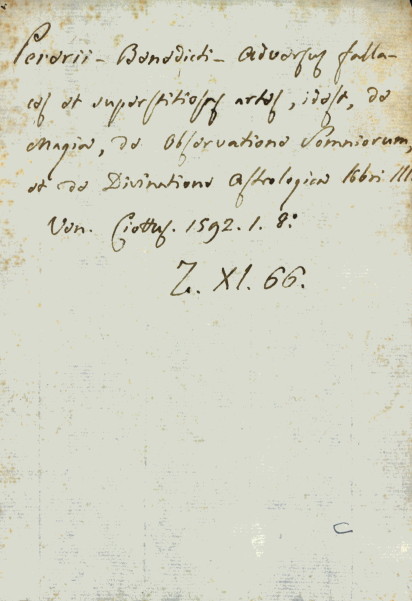 Pererii - Benedicti - Adversus falla-
ces et superstitiosas artes, idest, de
Magia, de Observatione Somniorum,
et de Divinatione Astrologica libri III
Ven. Ciottus. 1592. 1. 8.º
Z. XI. 66.
C